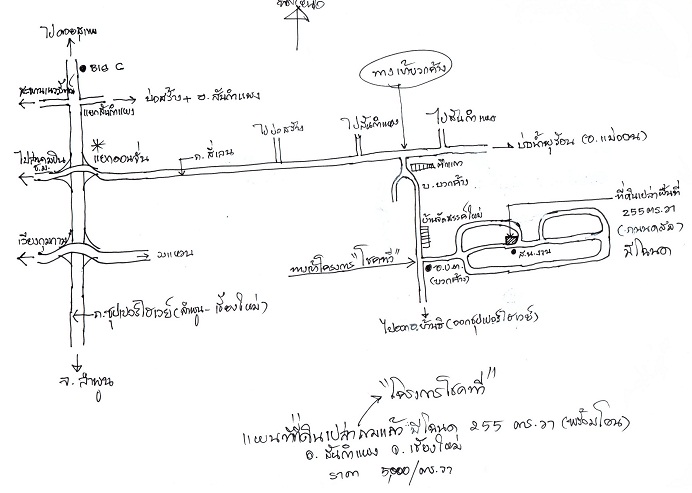 ทิศเหนือ
ไปดอยสะเก็ด
BIG C
บ่อสร้าง + อ. สันกำแพง
แยกสันกำแพง
แยกดอนจั่น
ไปสนามบิน
ช.ม.
ถ. 4 เลน
ไปบ่อสร้าง
ไปสันกำแพง
ไปสันกำแพง
ทางเข้าบวกค้าง
บ่อน้ำพุร้อน (อ. แม่ออน)
ตึกแถว
บ. บวกค้าง
บ้านจัดสรรใหม่
ที่ดินเปล่าพื้นที่
255 ตร.วา
มีโฉนด
ส.น.งาน
ทางเข้าโครงการ "โชคทวี"
อ.บ.ต.
(บวกค้าง)
เวียงกุมกาม
วงแหวน
ถ. ซุปเปอร์ไฮเวย์ (ลำพูน - เชียงใหม่)
จ. ลำพูน
(ออกซุปเปอร์ไฮเวย์)
"โครงการโชคทวี"
แผนที่ที่ดินเปล่าถมแล้ว มีโฉนด 255 ตร.วา (พร้อมโอน)
อ. สันกำแพง จ. เชียงใหม่
ราคา 5,000/ตร.วา